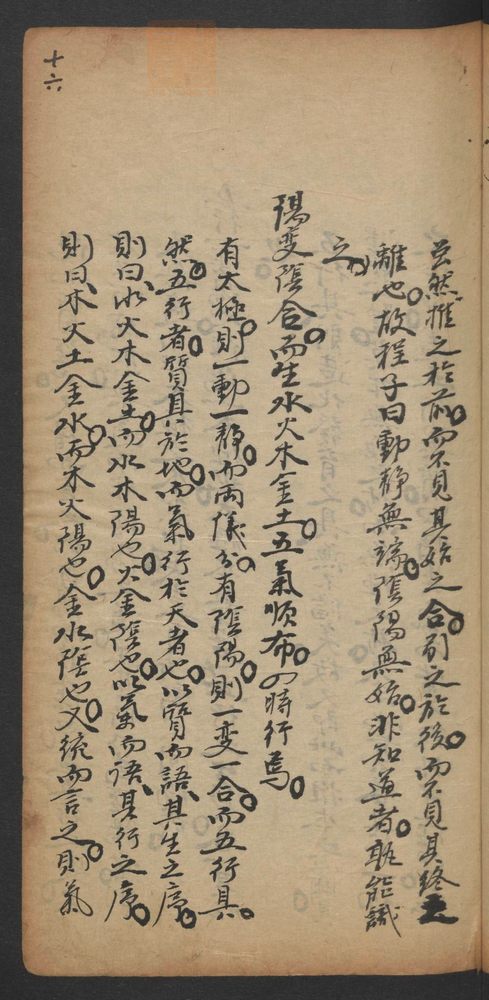 虽然推之於前而不見其始之合引之於後而不見其終之
離也故程子曰動静無端陰陽無始非知道者孰能識
之
陽变陰合而生水火木金土五氣順布の時行焉
有太極則一動一静而両儀分有陰陽則一变一合而五行具
然五行者質具於地而氣行於天者也以質而語其生之序
則曰水火木金土而水木陽也火金陰也以氣而語其行之序
則曰木火土金水而木火陽也金水陰也又統而言之則氣
十六